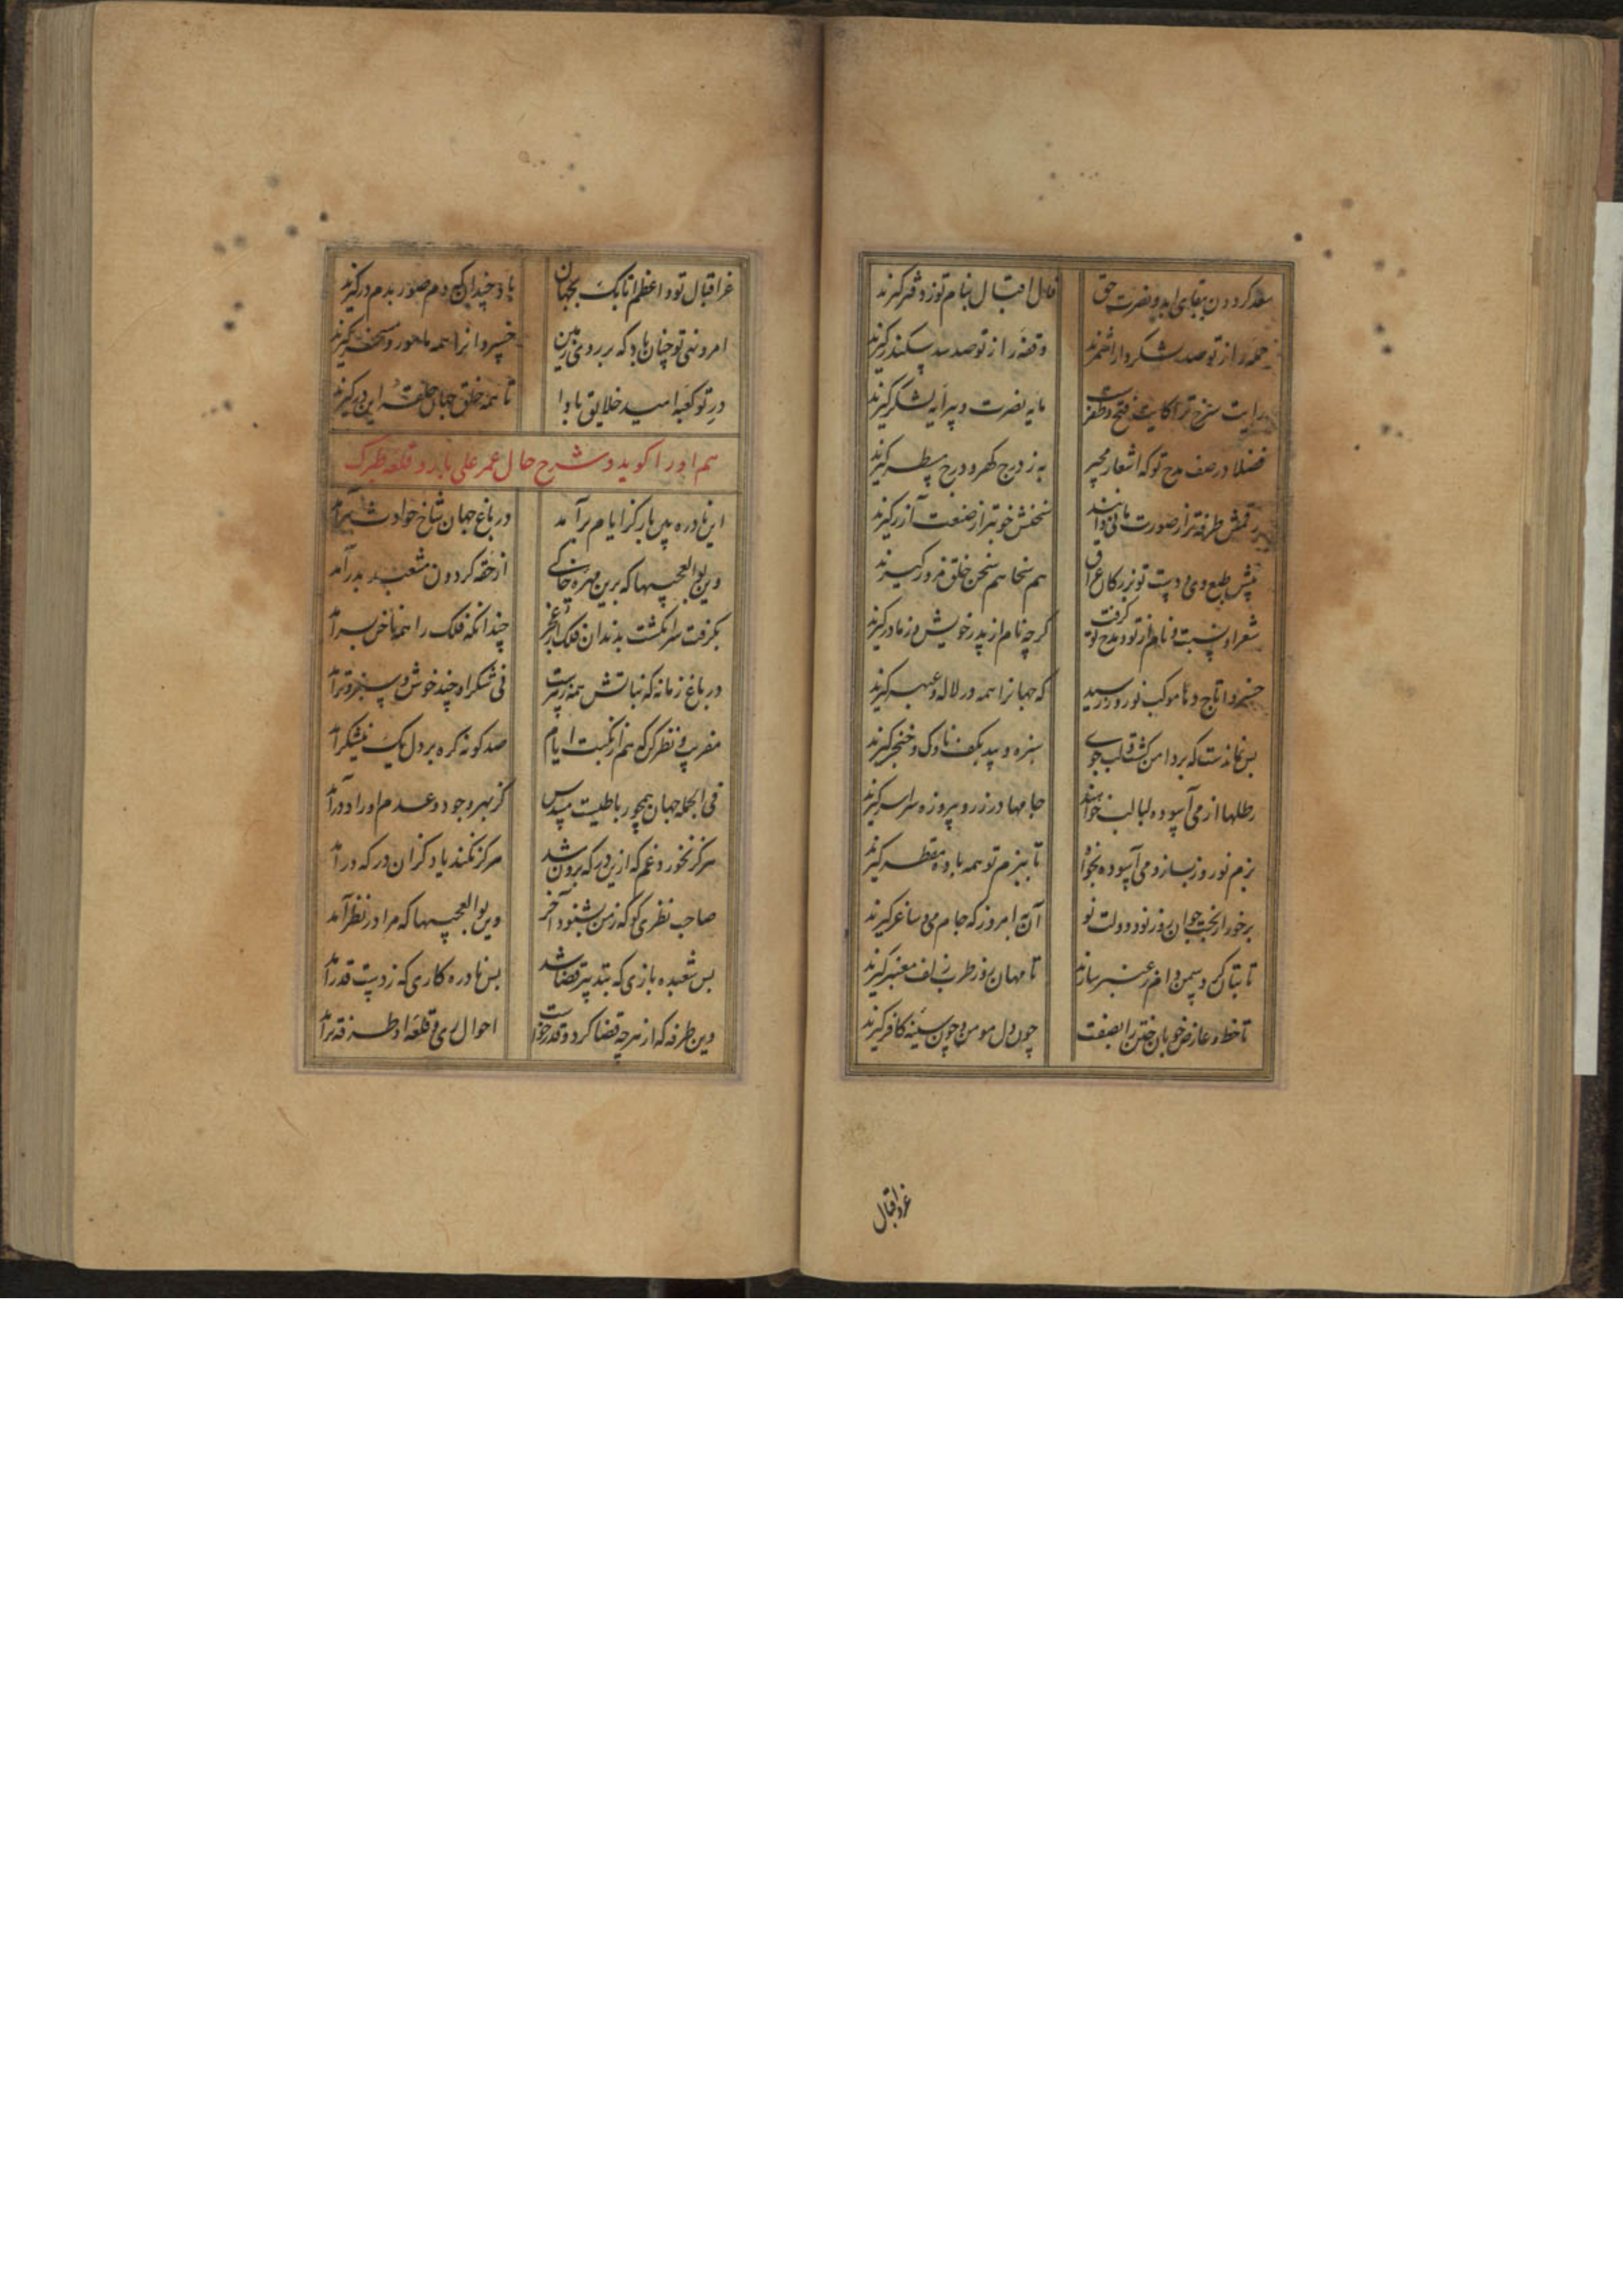 سعد کردون ببقای ابد و نصرت حق
فال اقبال بنام تو ز دفتر کیرند
حمله را از تو صد لشکر دارا شمرند
وقفه را از تو صد سد سکندر کیرند
رایت سنجق ترا کایت فتح و ظفرست
مایه نصرت و پیرایه لشکر کیرند
فضلا در صف مدح تو که اشعار مجیر
به ز درج کهر و درج مسطر کیرند
رقمش طرفه تر از صورت مانی دانند
سخنش خوبتر از صنعت آزر کیرند
پیش طبع وی و دست تو بزرکان عراق
هم سخا هم سخن خلق مزور کیرند
شعر او نسبت و نام از تو و مدح تو کرفت
کرچه نام از پدر خویش و ز مادر کیرند
خسروا تاج دها موکب نوروز رسید
که جهانرا همه در لاله و عبهر کیرند
بس نماندست که بر دامن کشت و لب جوی
سبزه و بید بکف ناوک و خنجر کیرند
رطلها از می آسوده لبالب خواهند
جامها در زر و پیروزه سراسر کیرند
بزم نوروز بساز و می آسوده بخواه
تا ببزم تو همه باده مقطر کیرند
برخور از بخت جوان روز نو و دولت نو
آن به امروز که جام می و ساغر کیرند
تا بتان کرد سمن دام ز عنبر سازند
تا مهان روز طرب زلف معنبر کیرند
تا خط و عارض خوبان ختن را بصفت
چون دل مومن و چون سینه کافر کیرند
غر و اقبال
غر اقبال تو و اعظم اتابک بجهان
باد چندان که دم صور بدم درکیرند
امر و نهی تو چنان باد که بر روی زمین
خسروانرا همه مامور و مسخر کیرند
در تو کعبه امید خلایق بادا
تا همه خلق جهان حلقه این در کیرند
هم او را کوید و شرح حال عمر علی یار و قلعه طبرک
این نادره بین باز کز ایام برآمد
در باغ جهان شاخ حوادث ببر آمد
وین بوالعجبیها که برین مهره خاکی
از حقه کردون مشعبد بدر آمد
بکرفت سر انکشت بدندان فلک از عجز
چندانکه فلک را همه ناخن بسر آمد
در باغ زمانه که نباتش همه زهرست
نی شکر او چند خوش و سبز و تر آمد
مفریب و نظر کن که هم از نکبت ایام
صد کونه کره بر دل یک نیشکر آمد
فی الجمله جهان همچو رباطیست مسدس
کز بهر وجود و عدم او را دو در آمد
هرکز نخورد غم که ازین در که برون شد
هرکز نکند یاد کزان در که درآمد
صاحب نظری کو که ز من بشنود آخر
وین بوالعجبیها که مرا در نظر آمد
بس شعبده بازی که بتدبیر قضا شد
بس نادره کاری که ز دست قدر آمد
وین طرفه که از هرچه قضا کرد و قدر خواست
احوال ری و قلعه او طرفه تر آمد